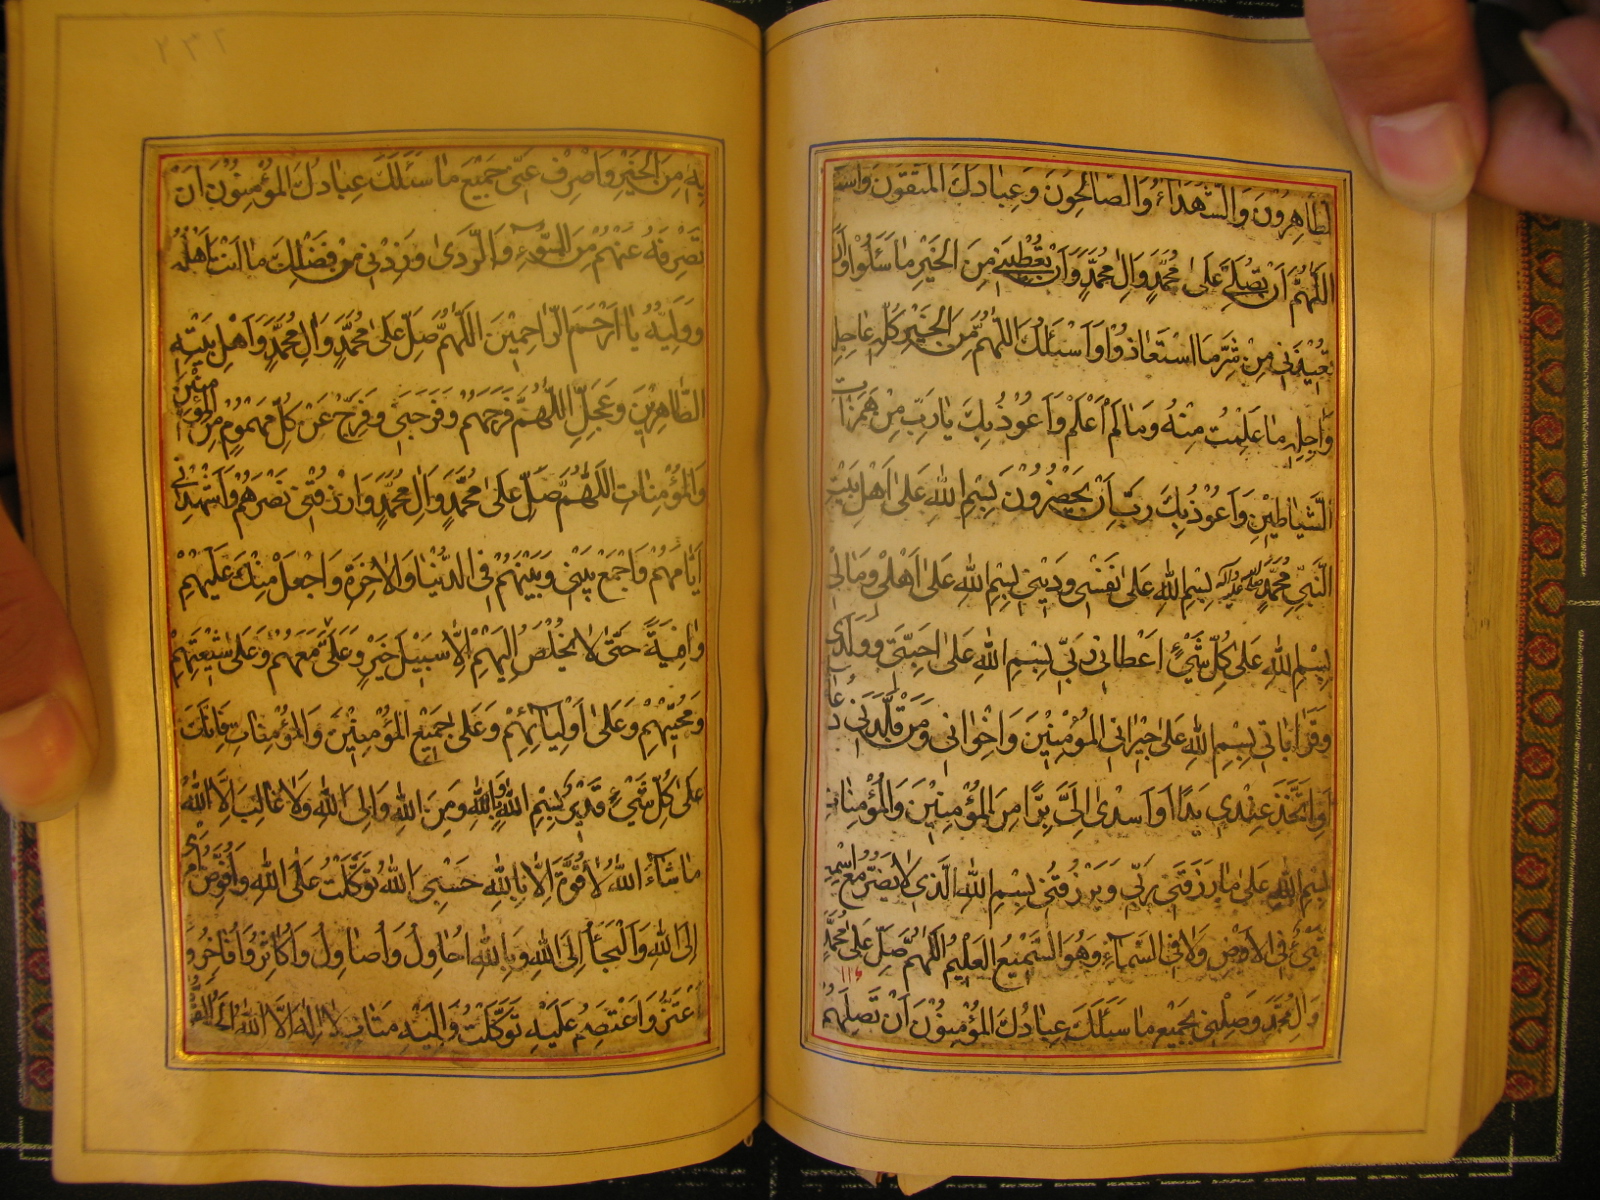 لطَّاهِرُونَ وَالشُّهَدَاءُ وَالصَّالِحُونَ وَعِبَادُكَ الْمُتَّقُونَ وَاسْ
اَللّٰهُمَّ اَنْ تُصَلِّىَ عَلىٰ مُحَمَّدٍ وَالِ مُحَمَّدٍ وَاَنْ تُعْطِيَنِى مِنَ الْخَيْرِ مَا سَئَلُوا وَاَنْ
تُعِيْذَنِى مِنْ شَرِّ مَا اسْتَعَاذُوْا وَاَسْئَلُكَ اللّٰهُمَّ مِنَ الْخَيْرِ كُلِّهِ عَاجِلِ
وَاجِلِهِ مَا عَلِمْتُ مِنْهُ وَمَا لَمْ اَعْلَمْ وَاَعُوْذُ بِكَ يَا رَبِّ مِنْ هَمَزَاتِ
الشَّيَاطِيْنِ وَاَعُوْذُ بِكَ رَبِّ اَنْ يَحْضُرُوْنَ بِسْمِ اللهِ عَلىٰ اَهْلِ بَيْتِ
النَّبِىِّ مُحَمَّدٍ صَلَّى اللهُ عَلَيْهِ وَالِهِ بِسْمِ اللهِ عَلىٰ نَفْسِى وَدِيْنِى بِسْمِ اللهِ عَلىٰ اَهْلِى وَمَالِى
بِسْمِ اللهِ عَلىٰ كُلِّ شَىْءٍ اَعْطَانِى رَبِّى بِسْمِ اللهِ عَلىٰ اَحِبَّتِى وَوَلَدِى
وَقَرَابَاتِى بِسْمِ اللهِ عَلىٰ جِيْرَانِى الْمُؤْمِنِيْنَ وَاِخْوَانِى وَمَنْ قَلَّدَنِى دُعَاءً
اَوِ اتَّخَذَ عِنْدِى يَدًا اَوْ اَسْدىٰ اِلَىَّ بِرًّا مِنَ الْمُؤْمِنِيْنَ وَالْمُؤْمِنَاتِ
بِسْمِ اللهِ عَلىٰ مَا رَزَقَنِى رَبِّى وَيَرْزُقُنِى بِسْمِ اللهِ الَّذِى لَا يَضُرُّ مَعَ اسْمِهِ
شَىْءٌ فِى الْاَرْضِ وَلَا فِى السَّمَاءِ وَهُوَ السَّمِيْعُ الْعَلِيْمُ اَللّٰهُمَّ صَلِّ عَلىٰ مُحَمَّدٍ
وَالِ مُحَمَّدٍ وَصِلْنِى بِجَمِيْعِ مَا سَئَلَكَ عِبَادُكَ الْمُؤْمِنُوْنَ اَنْ تَصِلَهُمْ
٢٣٢
بِهِ مِنَ الْخَيْرِ وَاصْرِفْ عَنِّى جَمِيْعَ مَا سَئَلَكَ عِبَادُكَ الْمُؤْمِنُوْنَ اَنْ
تَصْرِفَهُ عَنْهُمْ مِنَ السُّوْءِ وَالرَّدىٰ وَزِدْنِى مِنْ فَضْلِكَ مَا اَنْتَ اَهْلُهُ
وَوَلِيُّهُ يَا اَرْحَمَ الرَّاحِمِيْنَ اَللّٰهُمَّ صَلِّ عَلىٰ مُحَمَّدٍ وَالِ مُحَمَّدٍ وَاَهْلِ بَيْتِهِ
الطَّاهِرِيْنَ وَعَجِّلِ اللّٰهُمَّ فَرَجَهُمْ وَفَرَجِى وَفَرِّجْ عَنْ كُلِّ مَهْمُوْمٍ مِنَ الْمُؤْمِنِيْنَ
وَالْمُؤْمِنَاتِ اَللّٰهُمَّ صَلِّ عَلىٰ مُحَمَّدٍ وَالِ مُحَمَّدٍ وَارْزُقْنِى نَصْرَهُمْ وَاَشْهِدْنِى
اَيَّامَهُمْ وَاجْمَعْ بَيْنِى وَبَيْنَهُمْ فِى الدُّنْيَا وَالْاٰخِرَةِ وَاجْعَلْ مِنْكَ عَلَيْهِمْ
وَاقِيَةً حَتّىٰ لَا يُخْلَصَ اِلَيْهِمْ اِلَّا بِسَبِيْلِ خَيْرٍ وَعَلَىَّ مَعَهُمْ وَعَلىٰ شِيْعَتِهِمْ
وَمُحِبِّيْهِمْ وَعَلىٰ اَوْلِيَائِهِمْ وَعَلىٰ جَمِيْعِ الْمُؤْمِنِيْنَ وَالْمُؤْمِنَاتِ فَاِنَّكَ
عَلىٰ كُلِّ شَىْءٍ قَدِيْرٌ بِسْمِ اللهِ وَبِاللهِ وَمِنَ اللهِ وَاِلَى اللهِ وَلَا غَالِبَ اِلَّا اللهُ
مَا شَاءَ اللهُ لَا قُوَّةَ اِلَّا بِاللهِ حَسْبِىَ اللهُ تَوَكَّلْتُ عَلَى اللهِ وَاُفَوِّضُ اَمْرِى
اِلَى اللهِ وَاَلْتَجِأُ اِلَى اللهِ وَبِاللهِ اُحَاوِلُ وَاُصَاوِلُ وَاُكَاثِرُ وَاُفَاخِرُ وَ
اَعْتَزُّ وَاَعْتَصِمُ عَلَيْهِ تَوَكَّلْتُ وَاِلَيْهِ مَتَابِ لَا اِلٰهَ اِلَّا اللهُ الْحَىُّ الْقَ